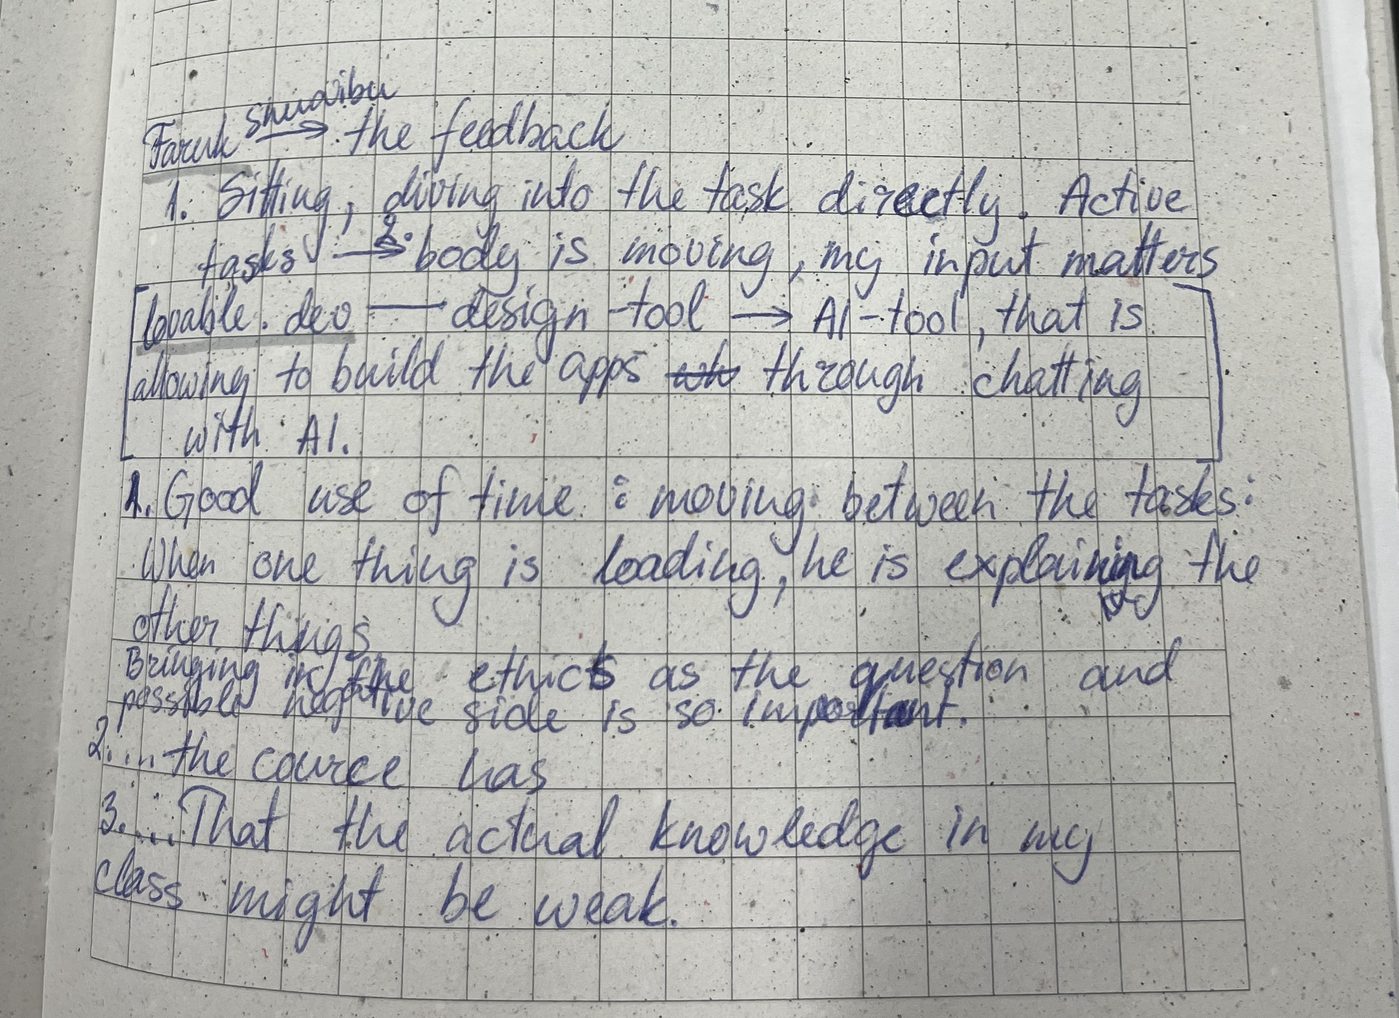 Shuaibu
Faruk → the feedback
1. Sitting, diving into the task directly. Active
tasks → 2. body is moving, my input matters
lovable.dev — design-tool → AI-tool, that is
allowing to build the apps through chatting
with AI.
1. Good use of time: moving between the tasks:
When one thing is loading, he is explaining the
other things
Bringing in the ethics as the question and
possible negative side is so important.
2. ... the cource has
3. ... That the actual knowledge in my
class might be weak.